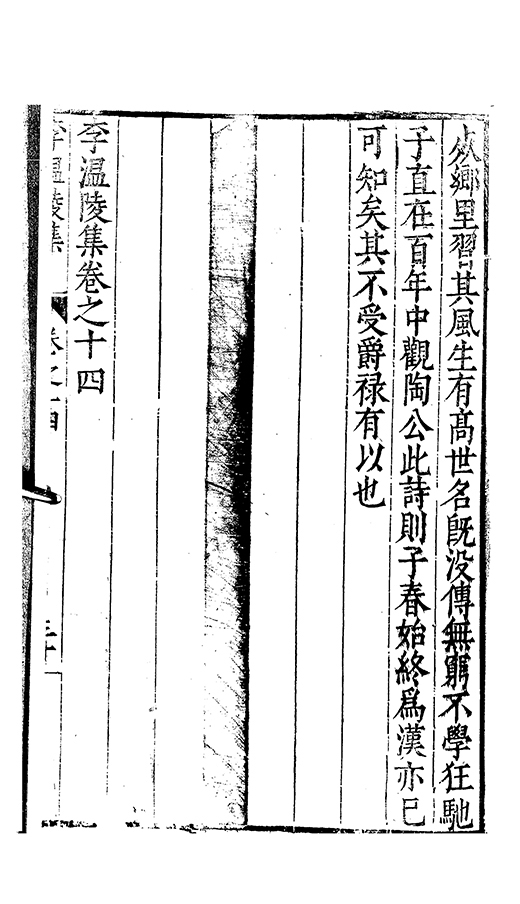 鄉里習其風生有高世名既没傳無窮不學狂馳
子直在百年中觀陶公此詩則子春始終爲漢亦已
可知矣其不受爵禄有以也
李温陵集卷之十四
李温陵集